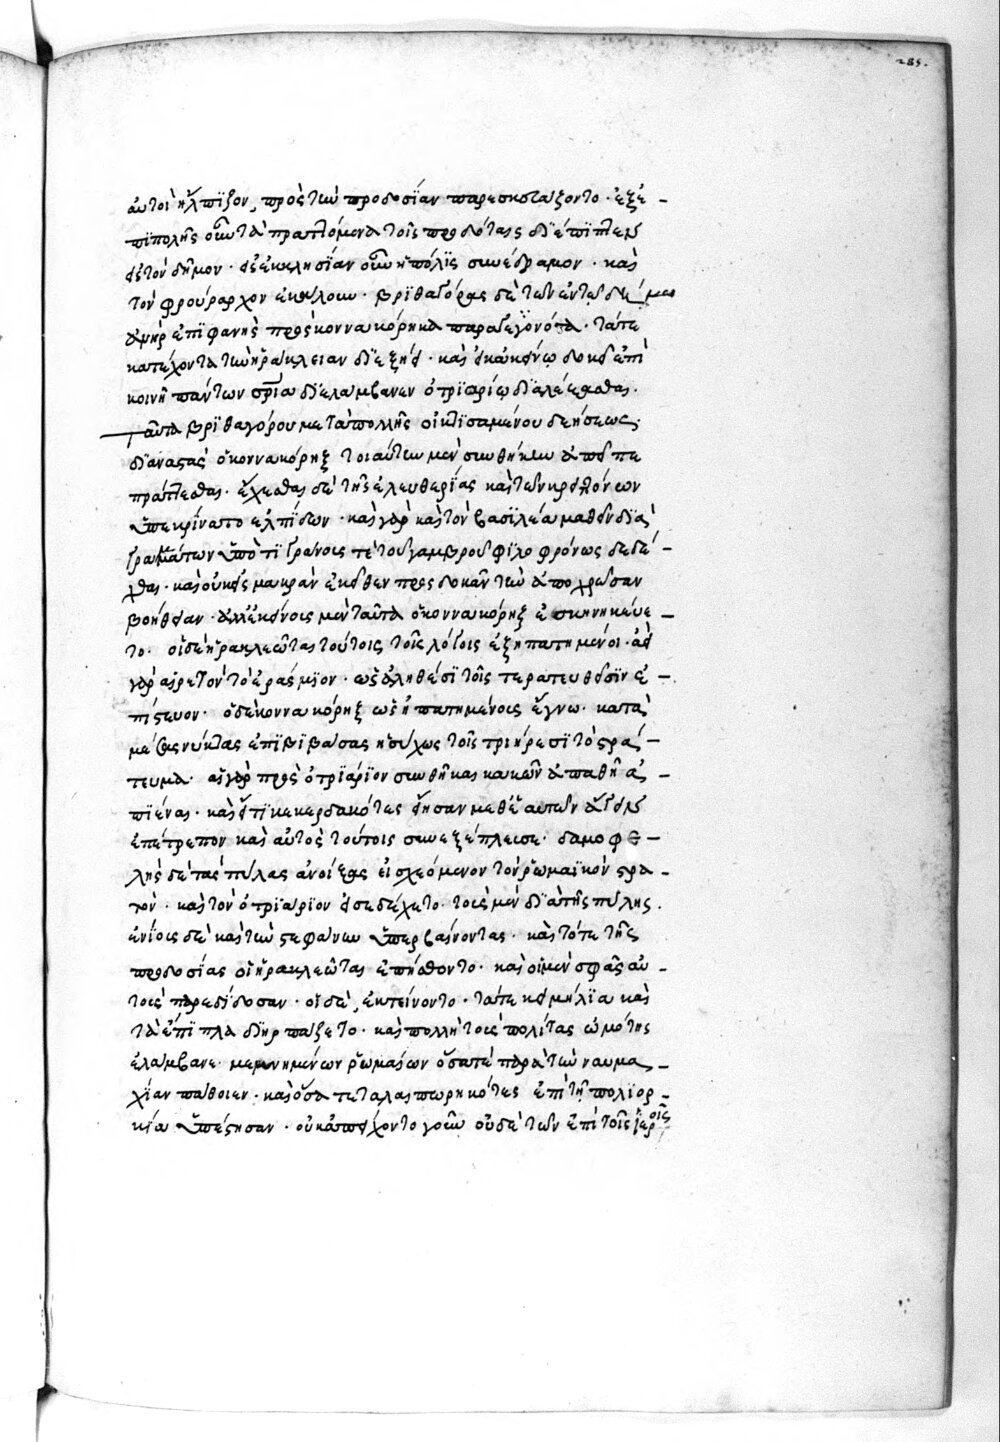 285.
αὐτοὶ ἤλπιζον, πρὸς τὴν προδοσίαν παρεσκευάζοντο· ἐξέ-
πιπολῆς οὖν τὰ πραττόμενα τοῖς προδόταις διέπιπτεν
εἰς τὸν δῆμον· εἰς ἐκκλησίαν οὖν ἡ πόλις συνέδραμον· καὶ
τὸν φρούραρχον ἐκάλουν· βριθαγόρας δὲ τῶν ἐν τῷ δήμῳ
ἀνὴρ ἐπιφανὴς πρὸς κοννακόρηκα παραγεγονότα· τά τε
κατέχοντα τὴν ἡράκλειαν διεξῄει· καὶ εἰ κἀκείνῳ δοκεῖ ἐπὶ
κοινῇ πάντων σωτηρίᾳ διελάμβανεν ὁ τριαρίῳ διαλέγεσθαι.
ταῦτα βριθαγόρου μετὰ πολλῆς οἰκτισαμένου δεήσεως·
διαναστὰς ὁ κοννακόρηξ τοιαύτην μὲν συνθήκην ἀπεῖπε
πράττεσθαι· ἔχεσθαι δὲ τῆς ἐλευθερίας καὶ τῶν κρειττόνων
ὑπεκρίνατο ἐλπίδων· καὶ γὰρ καὶ τὸν βασιλέα μαθεῖν διὰ
γραμμάτων ὑπὸ τιγράνοις τε τοῦ γαμβροῦ φιλοφρόνως δεδέ-
χθαι· καὶ οὐκ εἰς μακρὰν ἐκεῖθεν προσδοκᾶν τὴν ἀποχρῶσαν
βοήθειαν· ἀλλ' ἐκείνοις μὲν ταῦτα ὁ κοννακόρηξ ἐσκηνικεύε-
το· οἱ δὲ ἡρακλεῶται τούτοις τοῖς λόγοις ἐξηπατημένοι· ἀεὶ
γὰρ αἱρετὸν τὸ ἐράσμιον· ὡς ἀληθέσι τοῖς τερατευθεῖσιν ἐ-
πίστευον· ὁ δὲ κοννακόρηξ ὡς ἠπατημένοις ἔγνω· κατὰ
μέσας νύκτας ἐπιβιβάσας ἡσύχως τοῖς τριήρεσι τὸ στρά-
τευμα· αἱ γὰρ πρὸς ὁ τριάριον συνθῆκαι κακῶν ἀπαθῆ ἀ-
πιέναι· καὶ εἴ τι κεκερδακότες εἴησαν μεθ' ἑαυτῶν ἄγειν
ἐπέτρεπον καὶ αὐτὸς τούτοις συνεξέπλευσε· δαμοφέ-
λης δὲ τὰς πύλας ἀνοίξας εἰσχεόμενον τὸν ῥωμαϊκὸν στρα-
τὸν· καὶ τὸν ὁ τριάριον εἰσεδέχετο· τοὺς μὲν διὰ τῆς πύλης.
ἐνίους δὲ καὶ τὴν στεφάνην ὑπερβαίνοντας· καὶ τότε τῆς
προδοσίας οἱ ἡρακλεῶται ἐπῄσθοντο· καὶ οἱ μὲν σφᾶς αὐ-
τοὺς παρεδίδοσαν· οἱ δὲ, ἐκτείνοντο· τά τε κειμήλια καὶ
τὰ ἔπιπλα διηρπάζετο· καὶ πολλὴ τοὺς πολίτας ὠμότης
ἐλάμβανε· μεμνημένων ῥωμαίων ὅσα τε παρὰ τὴν ναυμα-
χίαν πάθοιεν· καὶ ὅσα τεταλαιπωρηκότες ἐπὶ τῇ πολιορ-
κίᾳ ὑπέστησαν· οὐκ ἀπείχοντο γοῦν οὐδὲ τῶν ἐπὶ τοῖς ἱεροῖς